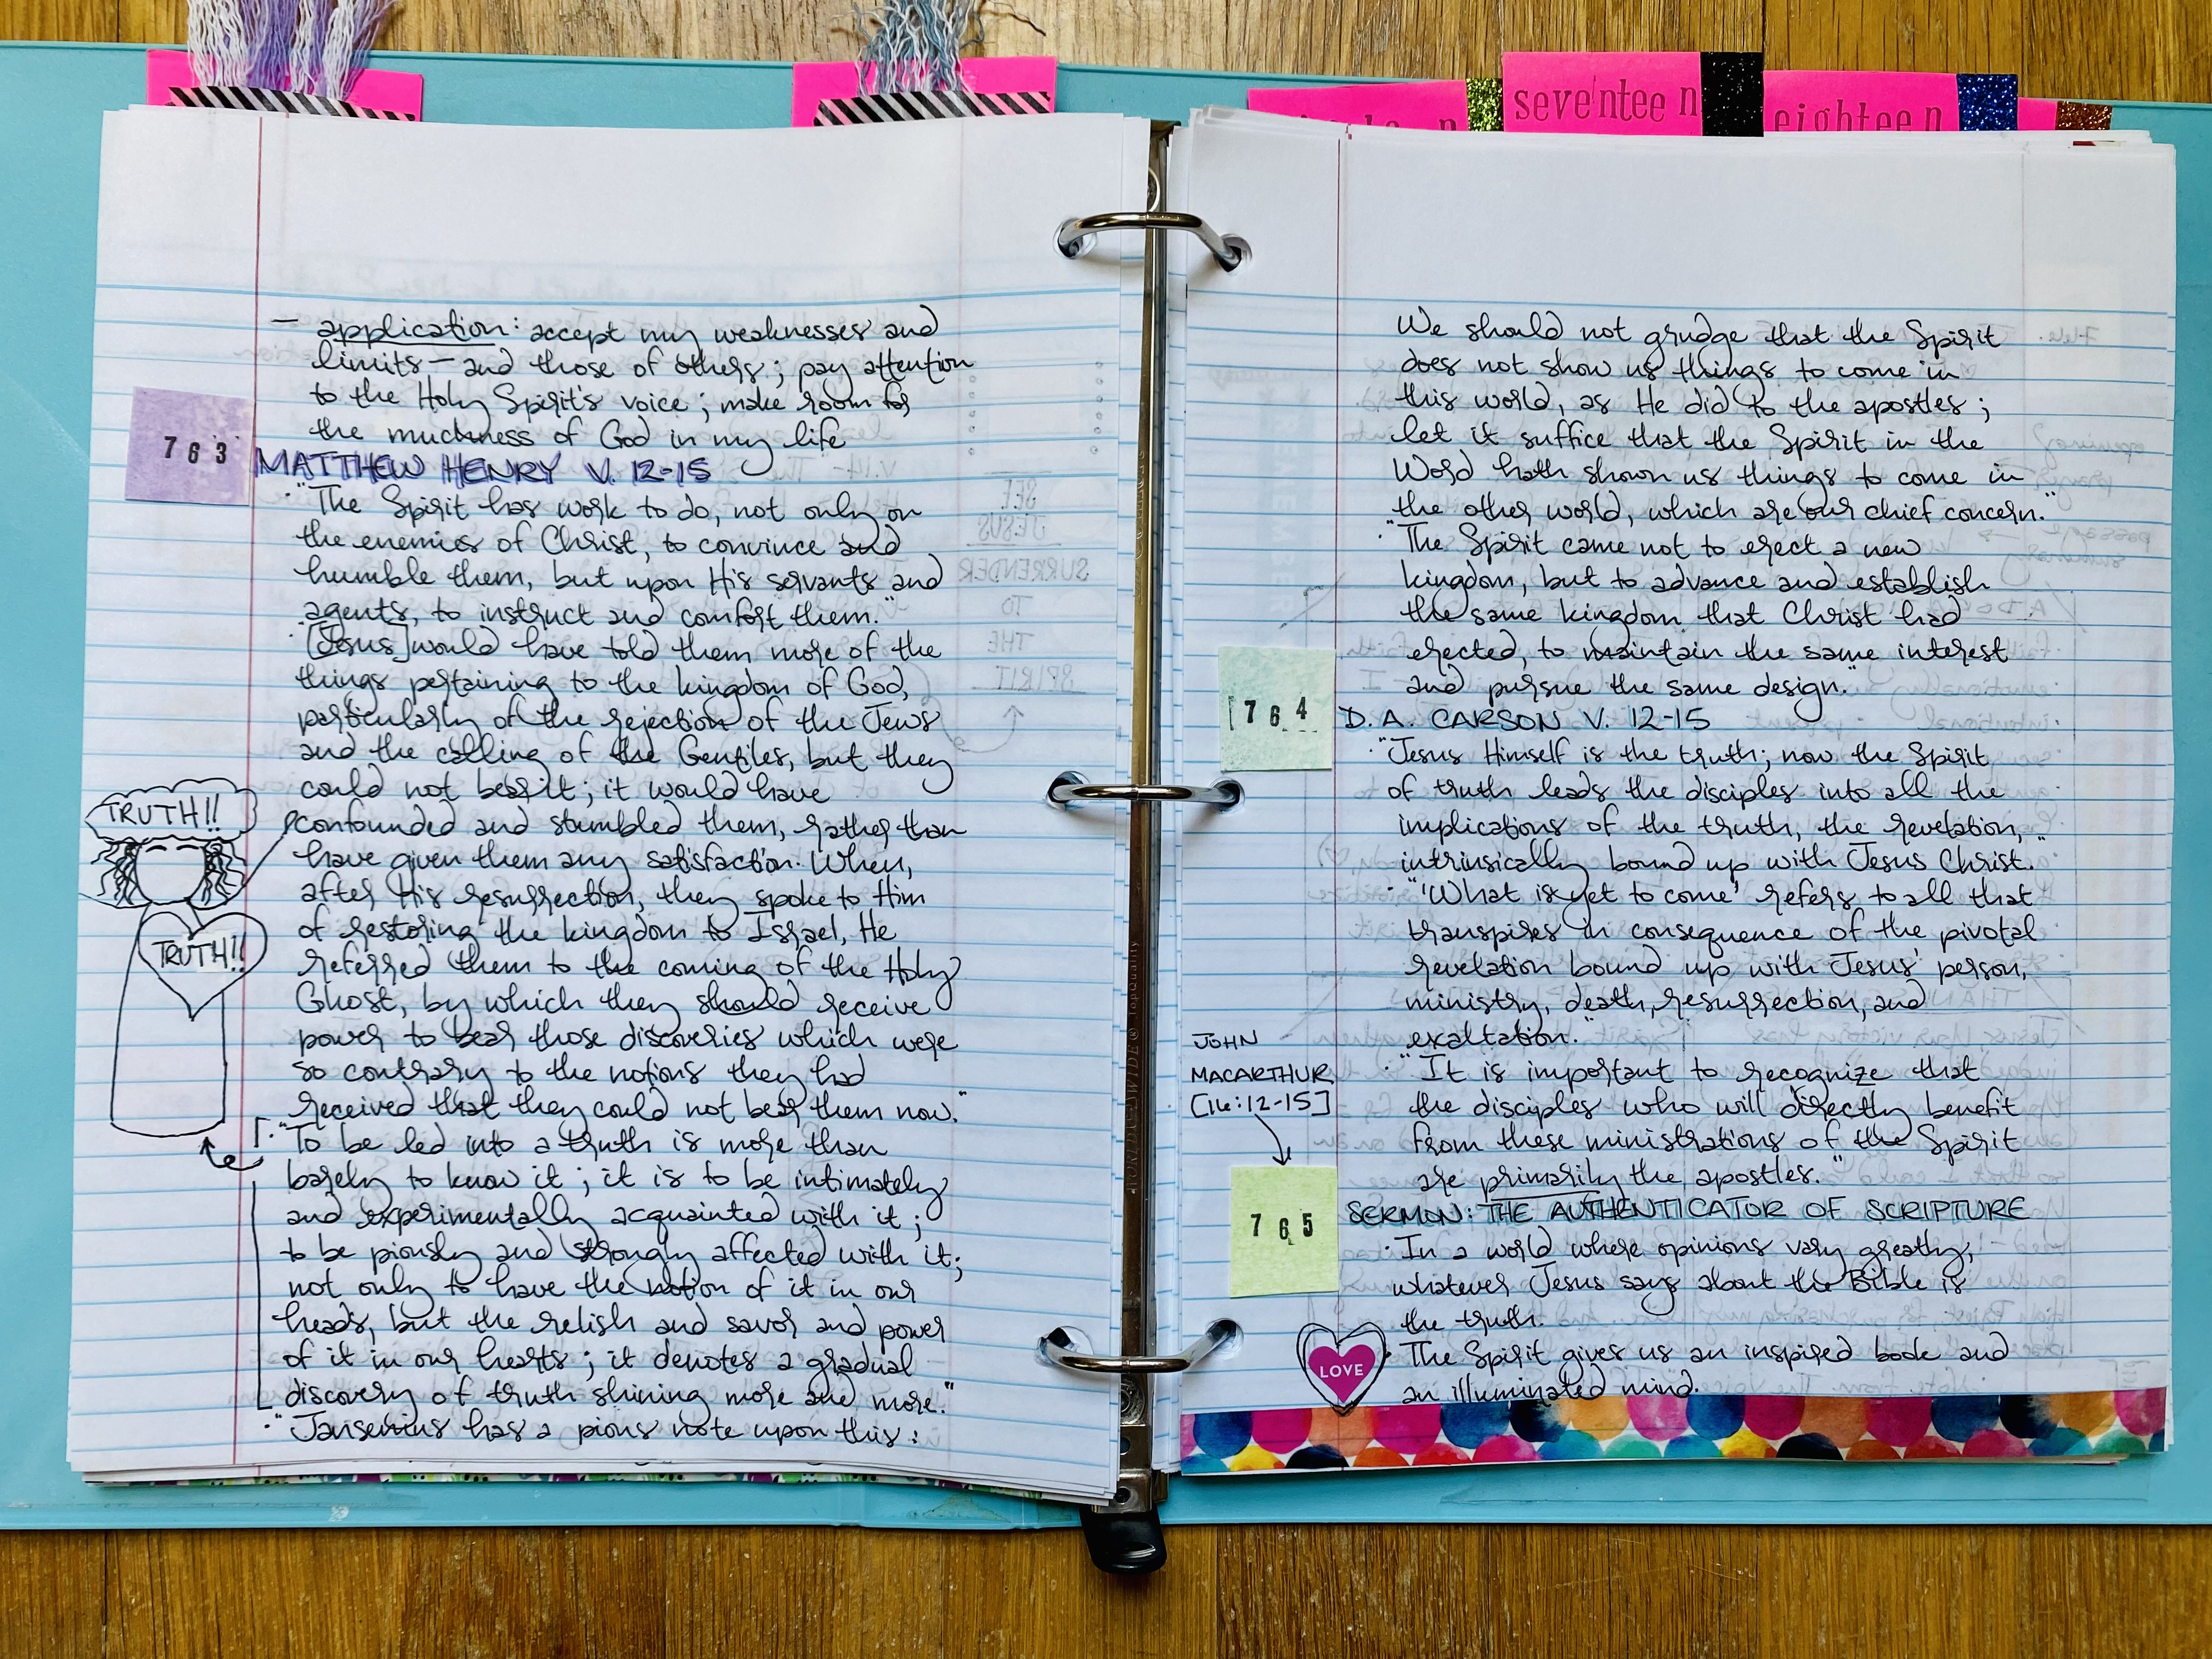 seventeen
eighteen
– application: accept my weaknesses and
limits – and those of others; pay attention
to the Holy Spirit's voice; make room for
the muchness of God in my life
763
MATTHEW HENRY V. 12-15
· "The Spirit has work to do, not only on
the enemies of Christ, to convince and
humble them, but upon His servants and
agents, to instruct and comfort them."
· [Jesus] would have told them more of the
things pertaining to the kingdom of God,
particularly of the rejection of the Jews
and the calling of the Gentiles, but they
could not bear it; it would have
confounded and stumbled them, rather than
have given them any satisfaction. When,
after His resurrection, they spoke to Him
of restoring the kingdom to Israel, He
referred them to the coming of the Holy
Ghost, by which they should receive
power to bear those discoveries which were
so contrary to the notions they had
received that they could not bear them now."
TRUTH!!
TRUTH!!
· "To be led into a truth is more than
barely to know it; it is to be intimately
and experimentally acquainted with it;
to be piously and strongly affected with it;
not only to have the notion of it in our
heads, but the relish and savor and power
of it in our hearts; it denotes a gradual
discovery of truth shining more and more."
· "Jansenius has a pious note upon this:
We should not grudge that the Spirit
does not show us things to come in
this world, as He did to the apostles;
let it suffice that the Spirit in the
Word hath shown us things to come in
the other world, which are our chief concern."
· "The Spirit came not to erect a new
kingdom, but to advance and establish
the same kingdom that Christ had
erected, to maintain the same interest
and pursue the same design."
764
D.A. CARSON V. 12-15
· "Jesus Himself is the truth; now the Spirit
of truth leads the disciples into all the
implications of the truth, the revelation,
intrinsically bound up with Jesus Christ."
· "'What is yet to come' refers to all that
transpires in consequence of the pivotal
revelation bound up with Jesus' person,
ministry, death, resurrection, and
exaltation."
JOHN
MACARTHUR
[16:12-15]
· "It is important to recognize that
the disciples who will directly benefit
from these ministrations of the Spirit
are primarily the apostles."
765
SERMON: THE AUTHENTICATOR OF SCRIPTURE
· In a world where opinions vary greatly,
whatever Jesus says about the Bible is
the truth.
LOVE
· The Spirit gives us an inspired book and
an illuminated mind.